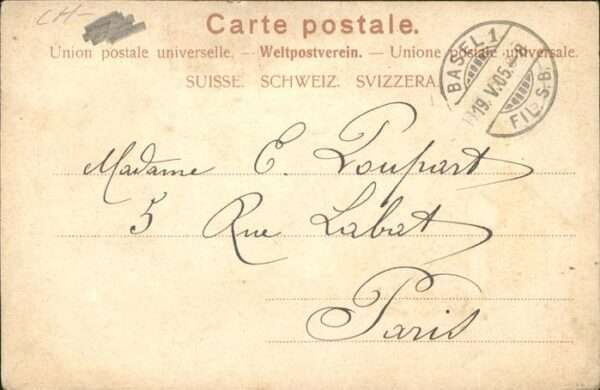 CH-
Carte postale.
Union postale universelle. — Weltpostverein. — Unione postale universale.
SUISSE. SCHWEIZ. SVIZZERA.
BASEL 1
19.V.05.
FIL. S.B.
Madame E. Poupart
5 Rue Labat
Paris